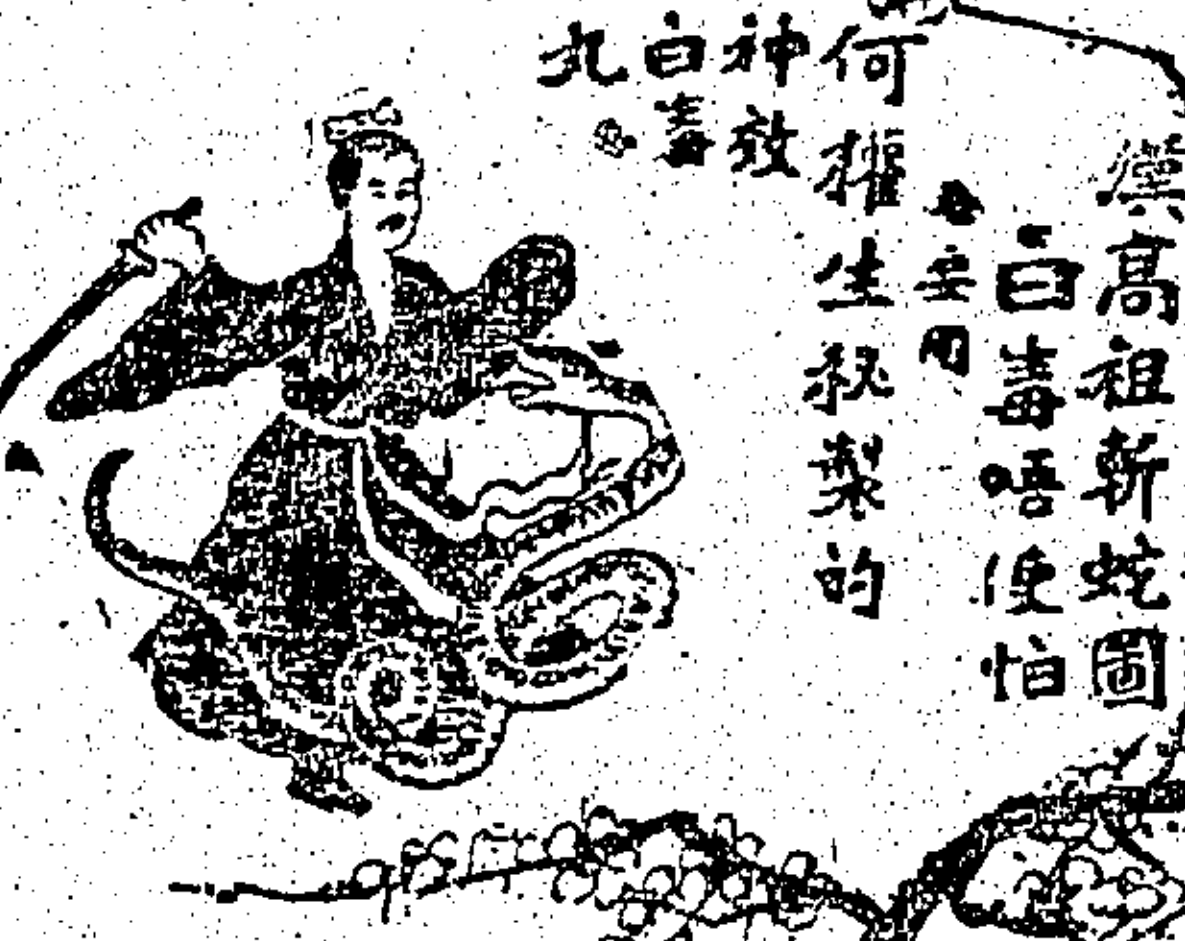 漢高祖斬蛇圖
白毒唔使怕
要用
何權生秘製的
神效
白毒
丸